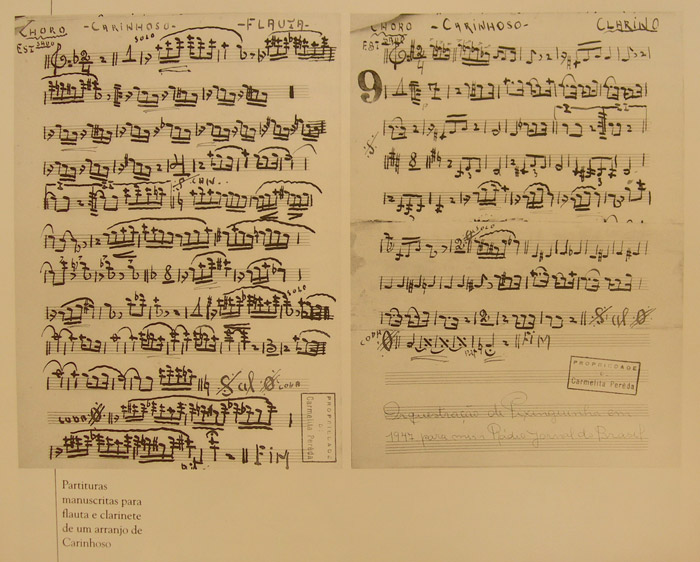 CHORO - CARINHOSO - - FLAUTA -
SOLO
SOLO
CODA
CODA
FIM
PROPRIEDADE
DE
Carmelita Perêda
CHORO - CARINHOSO - CLARINO
9
SOLO
CODA
FIM
PROPRIEDADE
DE
Carmelita Perêda
Orquestração de Pixinguinha em
1947 para Rádio Jornal do Brasil
Partituras
manuscritas para
flauta e clarinete
de um arranjo de
Carinhoso